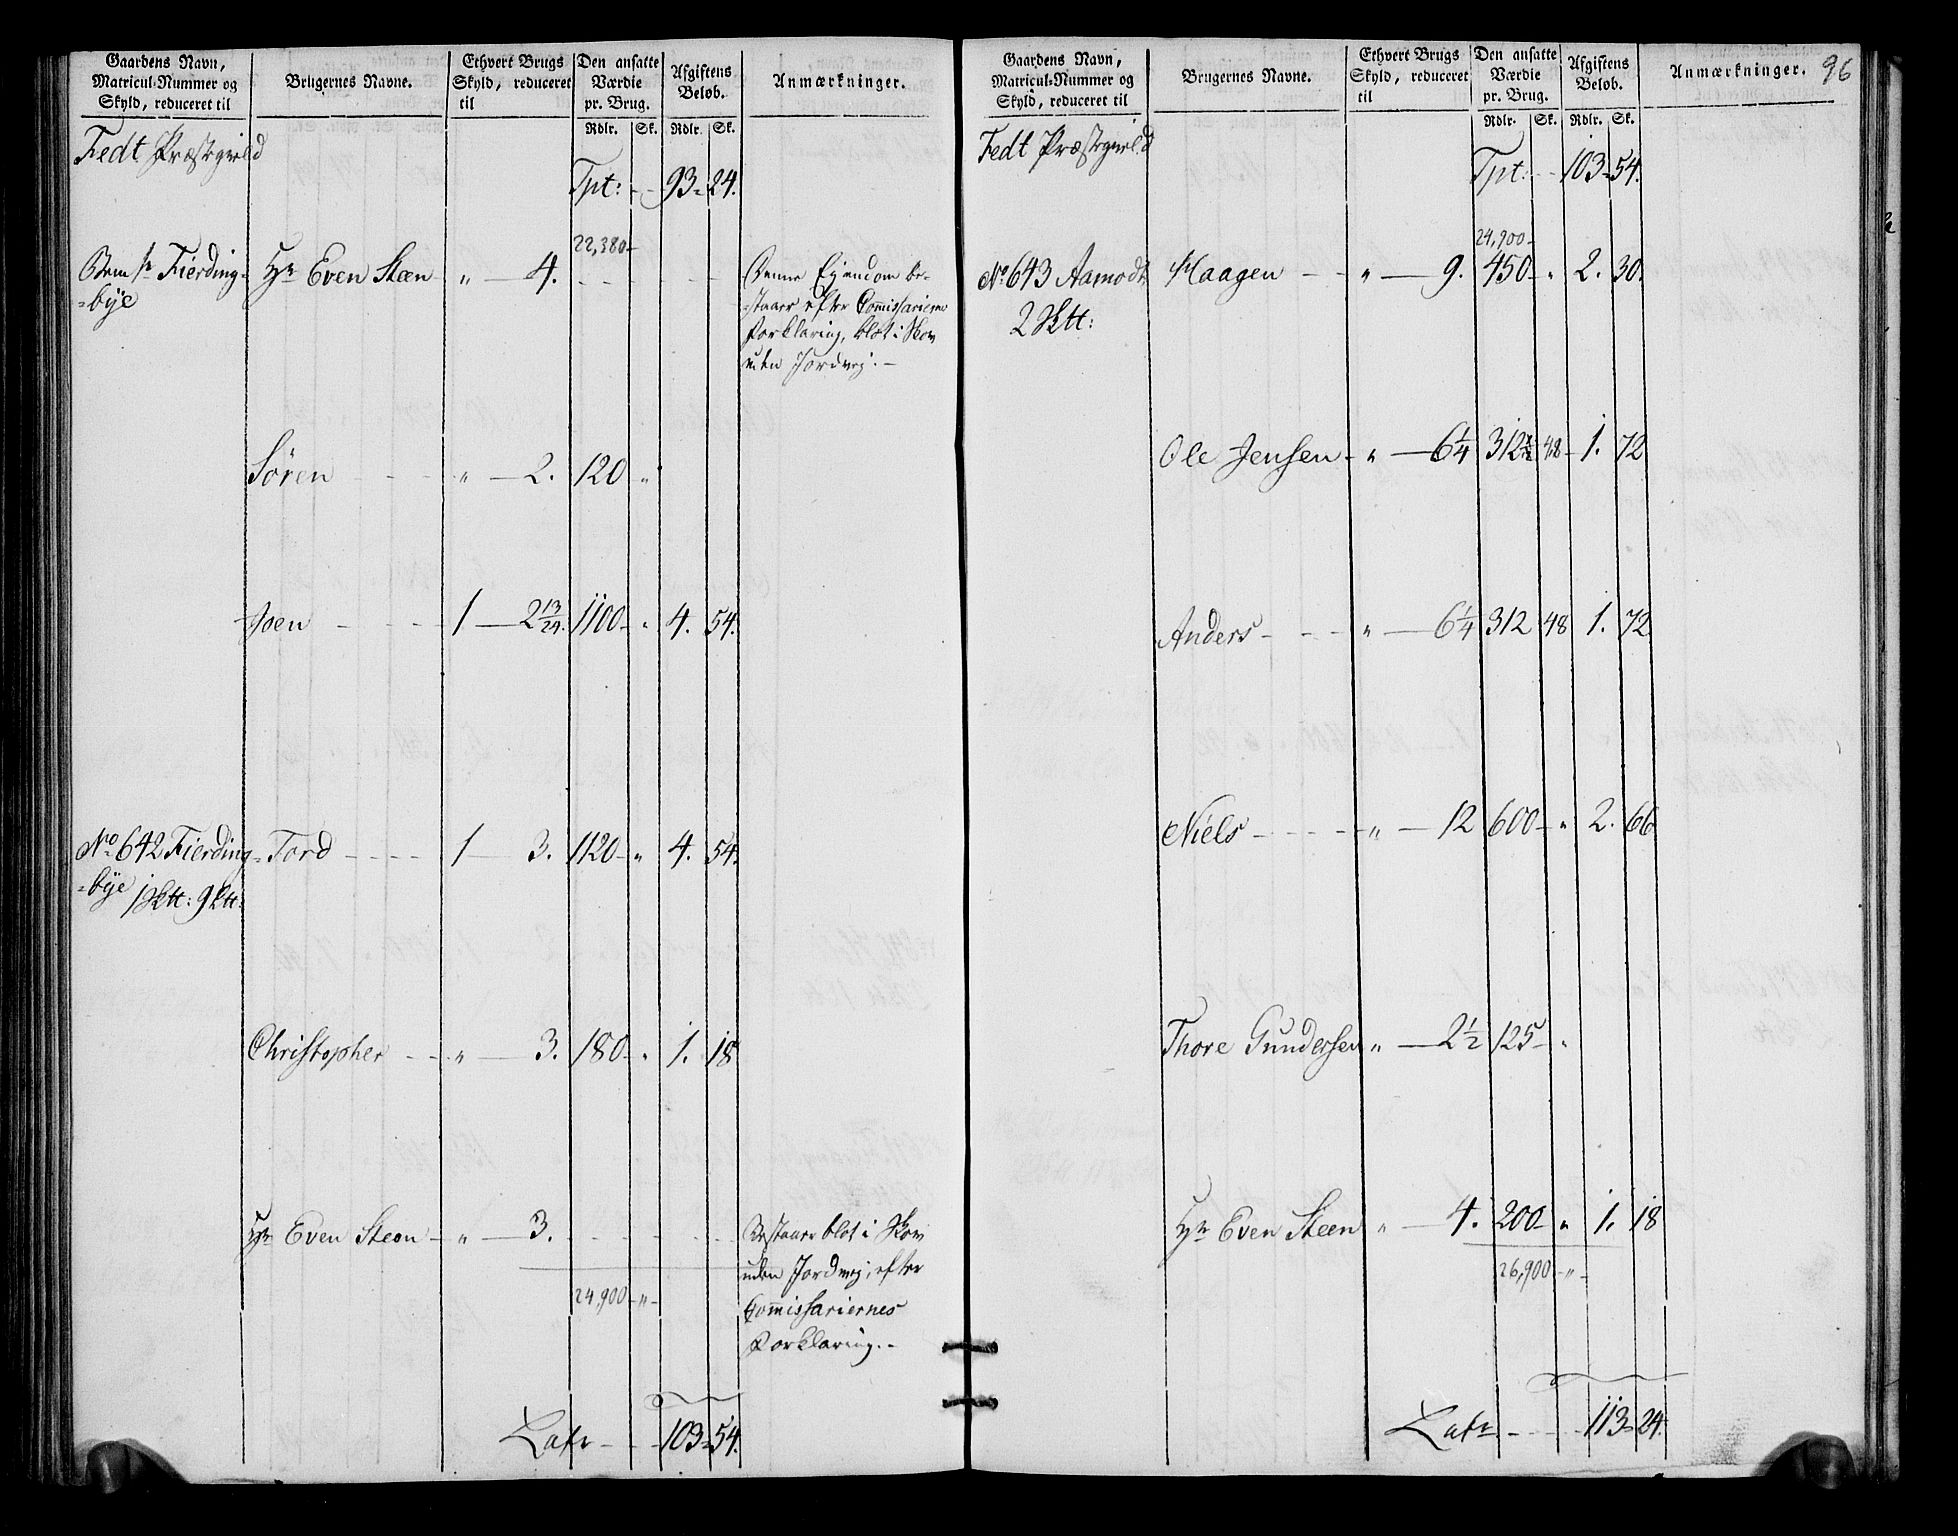 Gaardens Navn, Matricul-Nummer og Skyld, reduceret til | Brugernes Navne. | Ethvert Brugs Skyld, reduceret til | Den ansatte Værdie pr. Brug. Rdlr. Sk. | Afgiftens Beløb. Rdlr. Sk. | Anmærkninger.
Fedt Præstegield
Tpt: - - 93 - 24.
22,380 -
Fierding- Hr Even Steen - " - 4. - - - - Denne Ejendom be-
=bye =staaer efter Commissariernes
Forklaring, blot i Skov
uden Jordvej. -
Sören - - - " - 2. 120 "
Joen - - - 1 - 2 13/24. 1100 - " 4. 54.
No 642 Fierding= Tord - - - 1 - 3. 1120 - " 4. 54.
=bye 1 Sktt: 9 ktt:
Christopher - - " - 3. 180 - " 1. 18
Hr Even Steen - " - 3. - - - - Bestaaer blot i Skov
uden Jordvej, efter
24,900 - " - Commissariernes
Forklaring. -
Latr - - 103 - 54.
Gaardens Navn, Matricul-Nummer og Skyld, reduceret til | Brugernes Navne. | Ethvert Brugs Skyld, reduceret til | Den ansatte Værdie pr. Brug. Rdlr. Sk. | Afgiftens Beløb. Rdlr. Sk. | Anmærkninger. 96
Fedt Præstegield
Tpt: - - 103 - 54.
24,900 -
No 643 Aamodt Haagen - - " - 9. 450 - " 2. 30.
2 Sktt:
Ole Jensen - " - 6 1/4 312 48 - 1. 72
Anders - - - " - 6 1/4 312 48 1. 72
Niels - - - " - 12 600 - " 2. 66
Thore Gundersen " - 2 1/2 125 - "
Hr Even Steen " - 4. 200 - " 1. 18
26,900 - " -
Latr - - - 113 - 24.